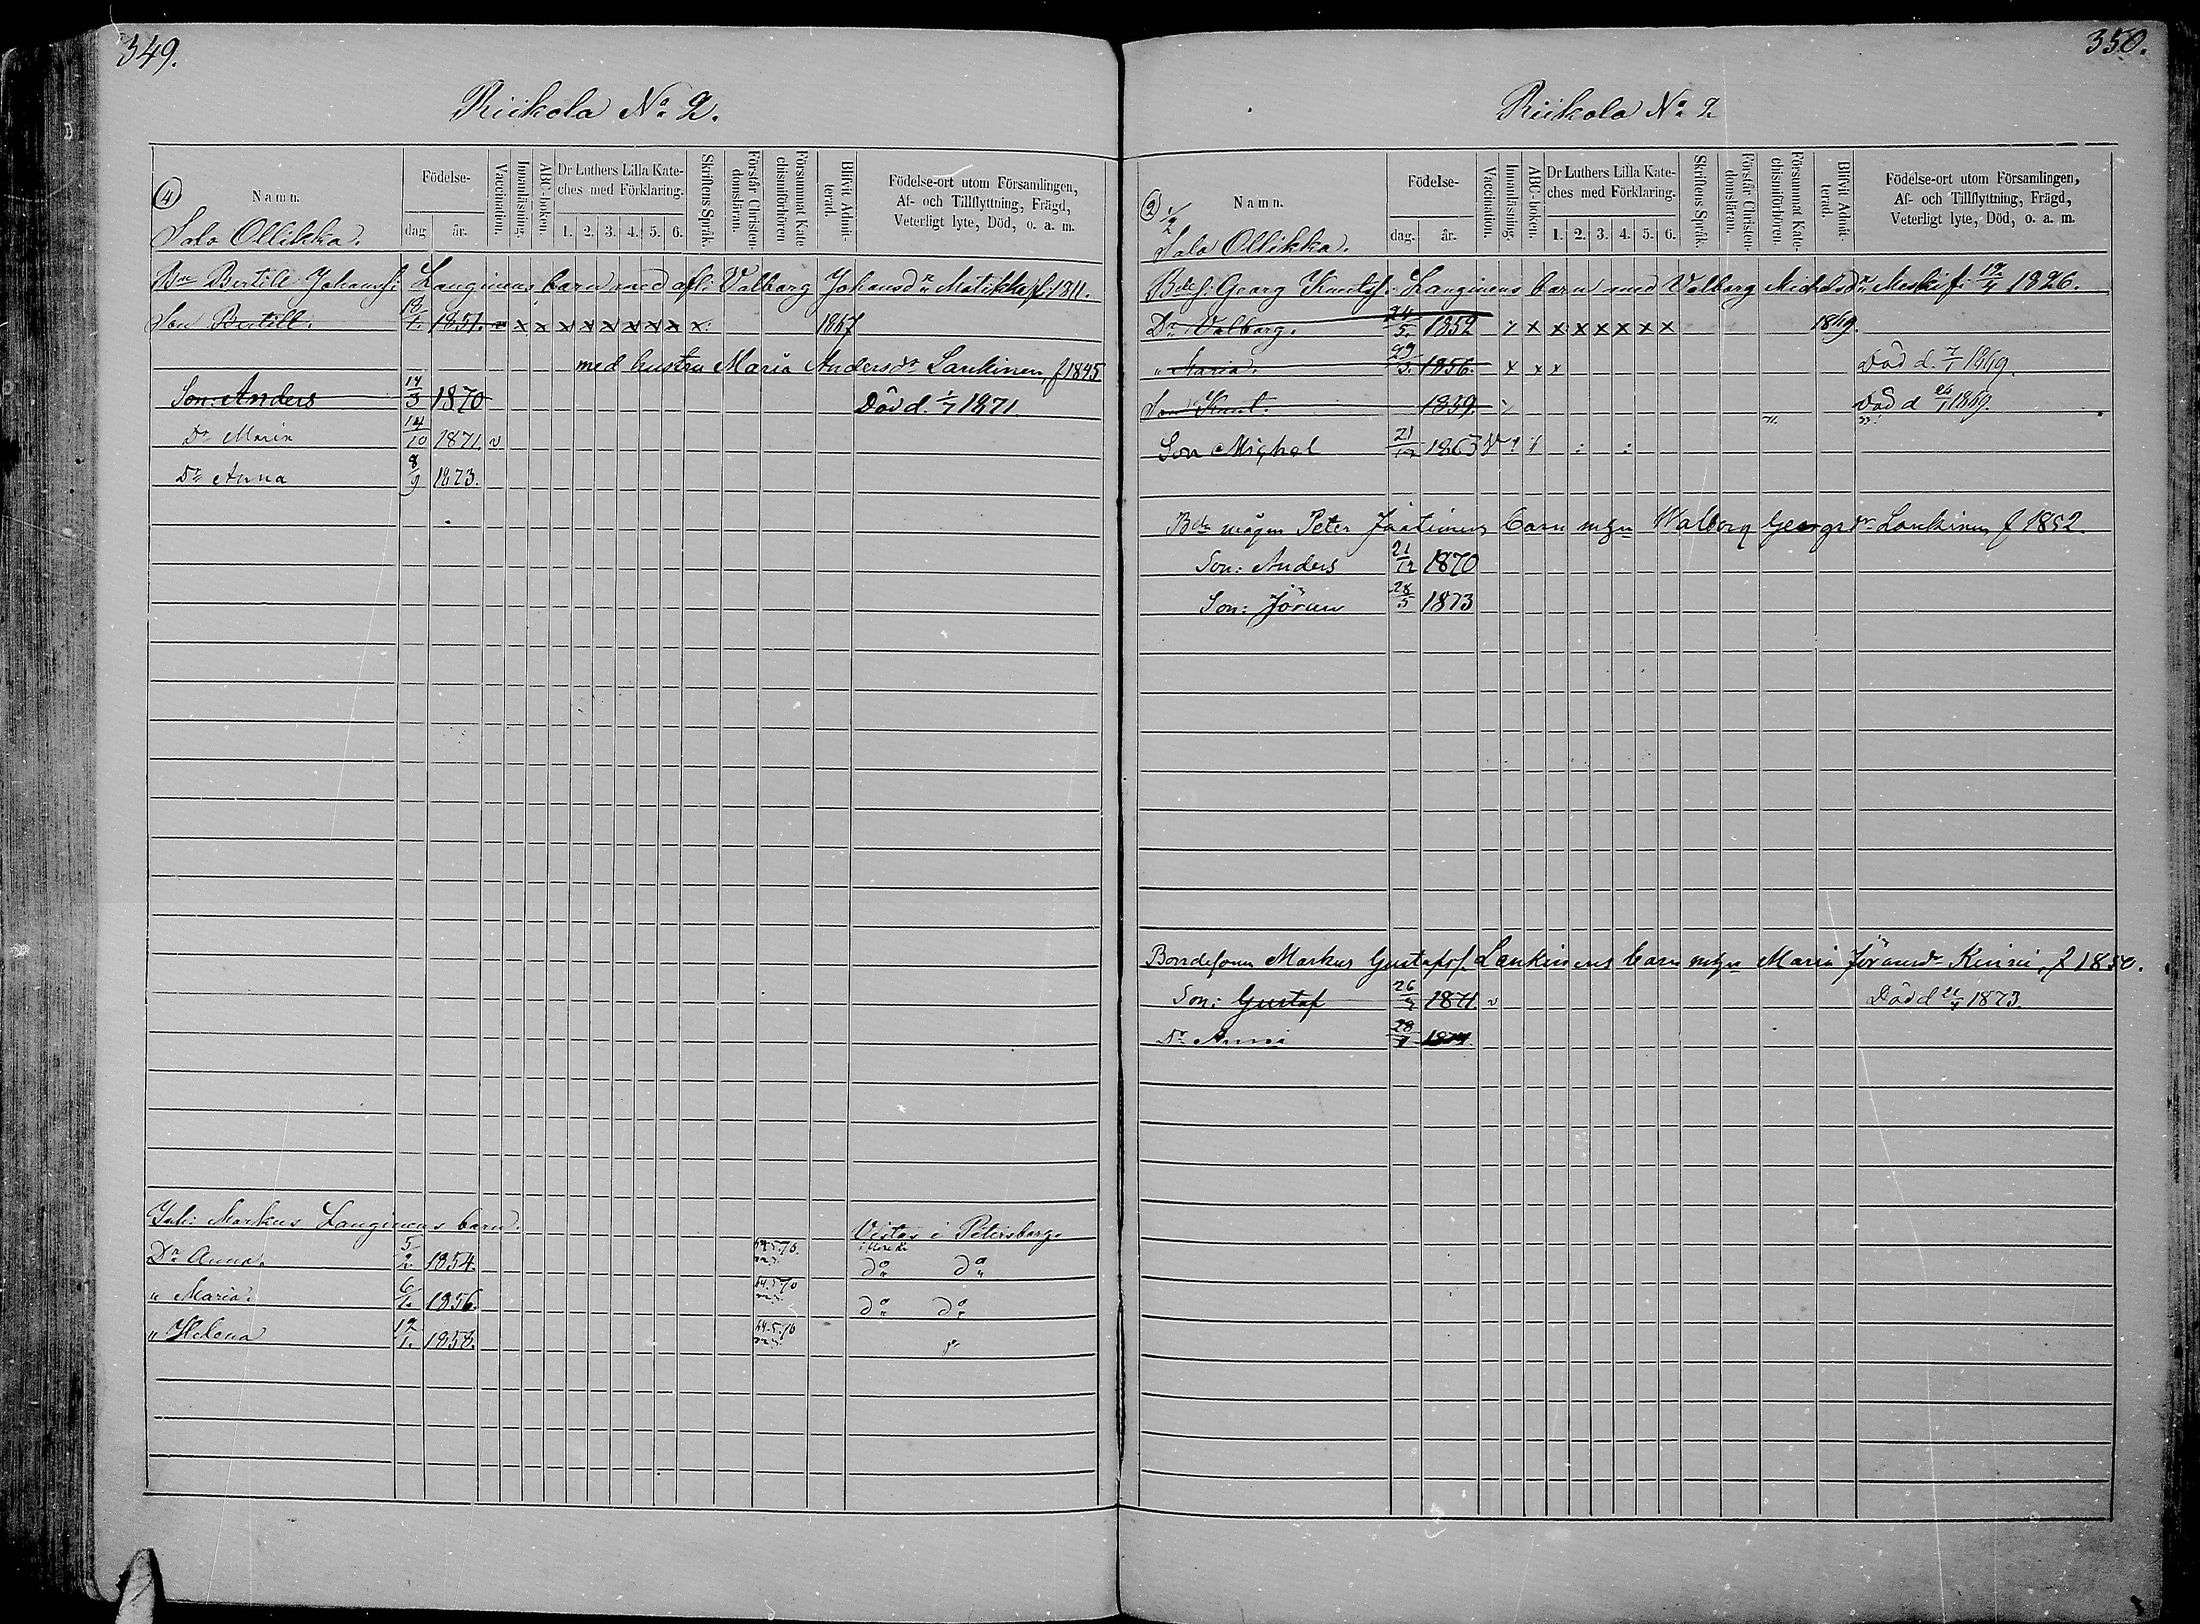 349.
Riikola No 2.
(4)
Namn.
Födelse-
dag
år.
Vaccination.
Innanläsning.
ABC-boken.
Dr Luthers Lilla Kate-
ches med Förklaring.
1. 2. 3. 4. 5. 6.
Skriftens Språk.
Förstår Christen-
domsläran.
Försummat Kate
chismiförhören
Blifvit Admit-
terad.
Födelse-ort utom Församlingen,
Af- och Tillflyttning, Frägd,
Veterligt lyte, Död, o. a. m.
Salo Ollikka.
Bertill Johansf: Langinens barn med afl: Valborg Johansdr Matikka, f. 1811.
Son Bertill. 1851. x x x x x x x x x 1867
med hustru Maria Andersdr Lankinen, f 1845
Son: Anders 14/3 1870 Död d. 1/7 1871
Dr Maria 14/10 1871. v
Dr Anna 8/9 1873.
Markus Langinens barn. Vistas i Petersburg.
Dr Anna. 5/2. 1854. do do
" Maria. 6/1. 1856. do do
" Helena 12/1. 1858. "
350.
Riikola No 2
(2) 1/2
Namn.
Födelse-
dag.
år.
Vaccination.
Innanläsning.
ABC-boken.
Dr Luthers Lilla Kate-
ches med Förklaring.
1. 2. 3. 4. 5. 6.
Skriftens Språk.
Förstår Christen-
domsläran.
Försummat Kate-
chismiförhören.
Blifvit Admit-
terad.
Födelse-ort utom Församlingen,
Af- och Tillflyttning, Frägd,
Veterligt lyte, Död, o. a. m.
Salo Ollikka.
Georg Knutsf. Langinens barn med Valborg Michelsdr Meski f. 1826.
Dr Valborg. 24/5 1852 x x x x x x x 1869.
" Maria. 29/3. 1856. x x x Död d. 7/1 1869.
Son Knut. 1859. Död d 26/1 1869.
Son Michel 21/12 1863
Bde mågen Peter Jäätinens barn mhn Walborg Georgsdr Lankinen f 1852.
Son: Anders 21/12 1870
Son: Jöran 28/5 1873
Bondesonen Markus Gustafsf. Lankinens barn mhn Maria Jöransdr Kinni, f 1850.
Son: Gustaf 1871. v Död d 1873.
Dr Anni